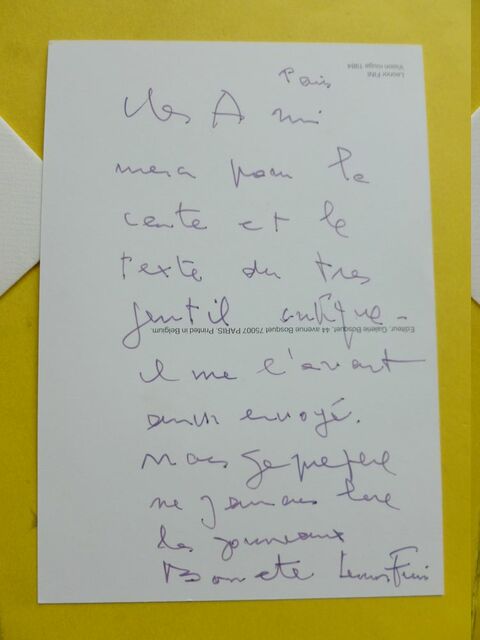 Leonor FINI
Vision rouge 1984
Paris
cher Ami
merci pour la
carte et le
texte du tres
gentil critique -
Editeur: Galerie Bosquet, 44 avenue Bosquet 75007 PARIS. Printed in Belgium
il me l'avait
aussi envoyé.
mais je prefere
ne jamais lire
les journaux
Bon ete Leonor Fini